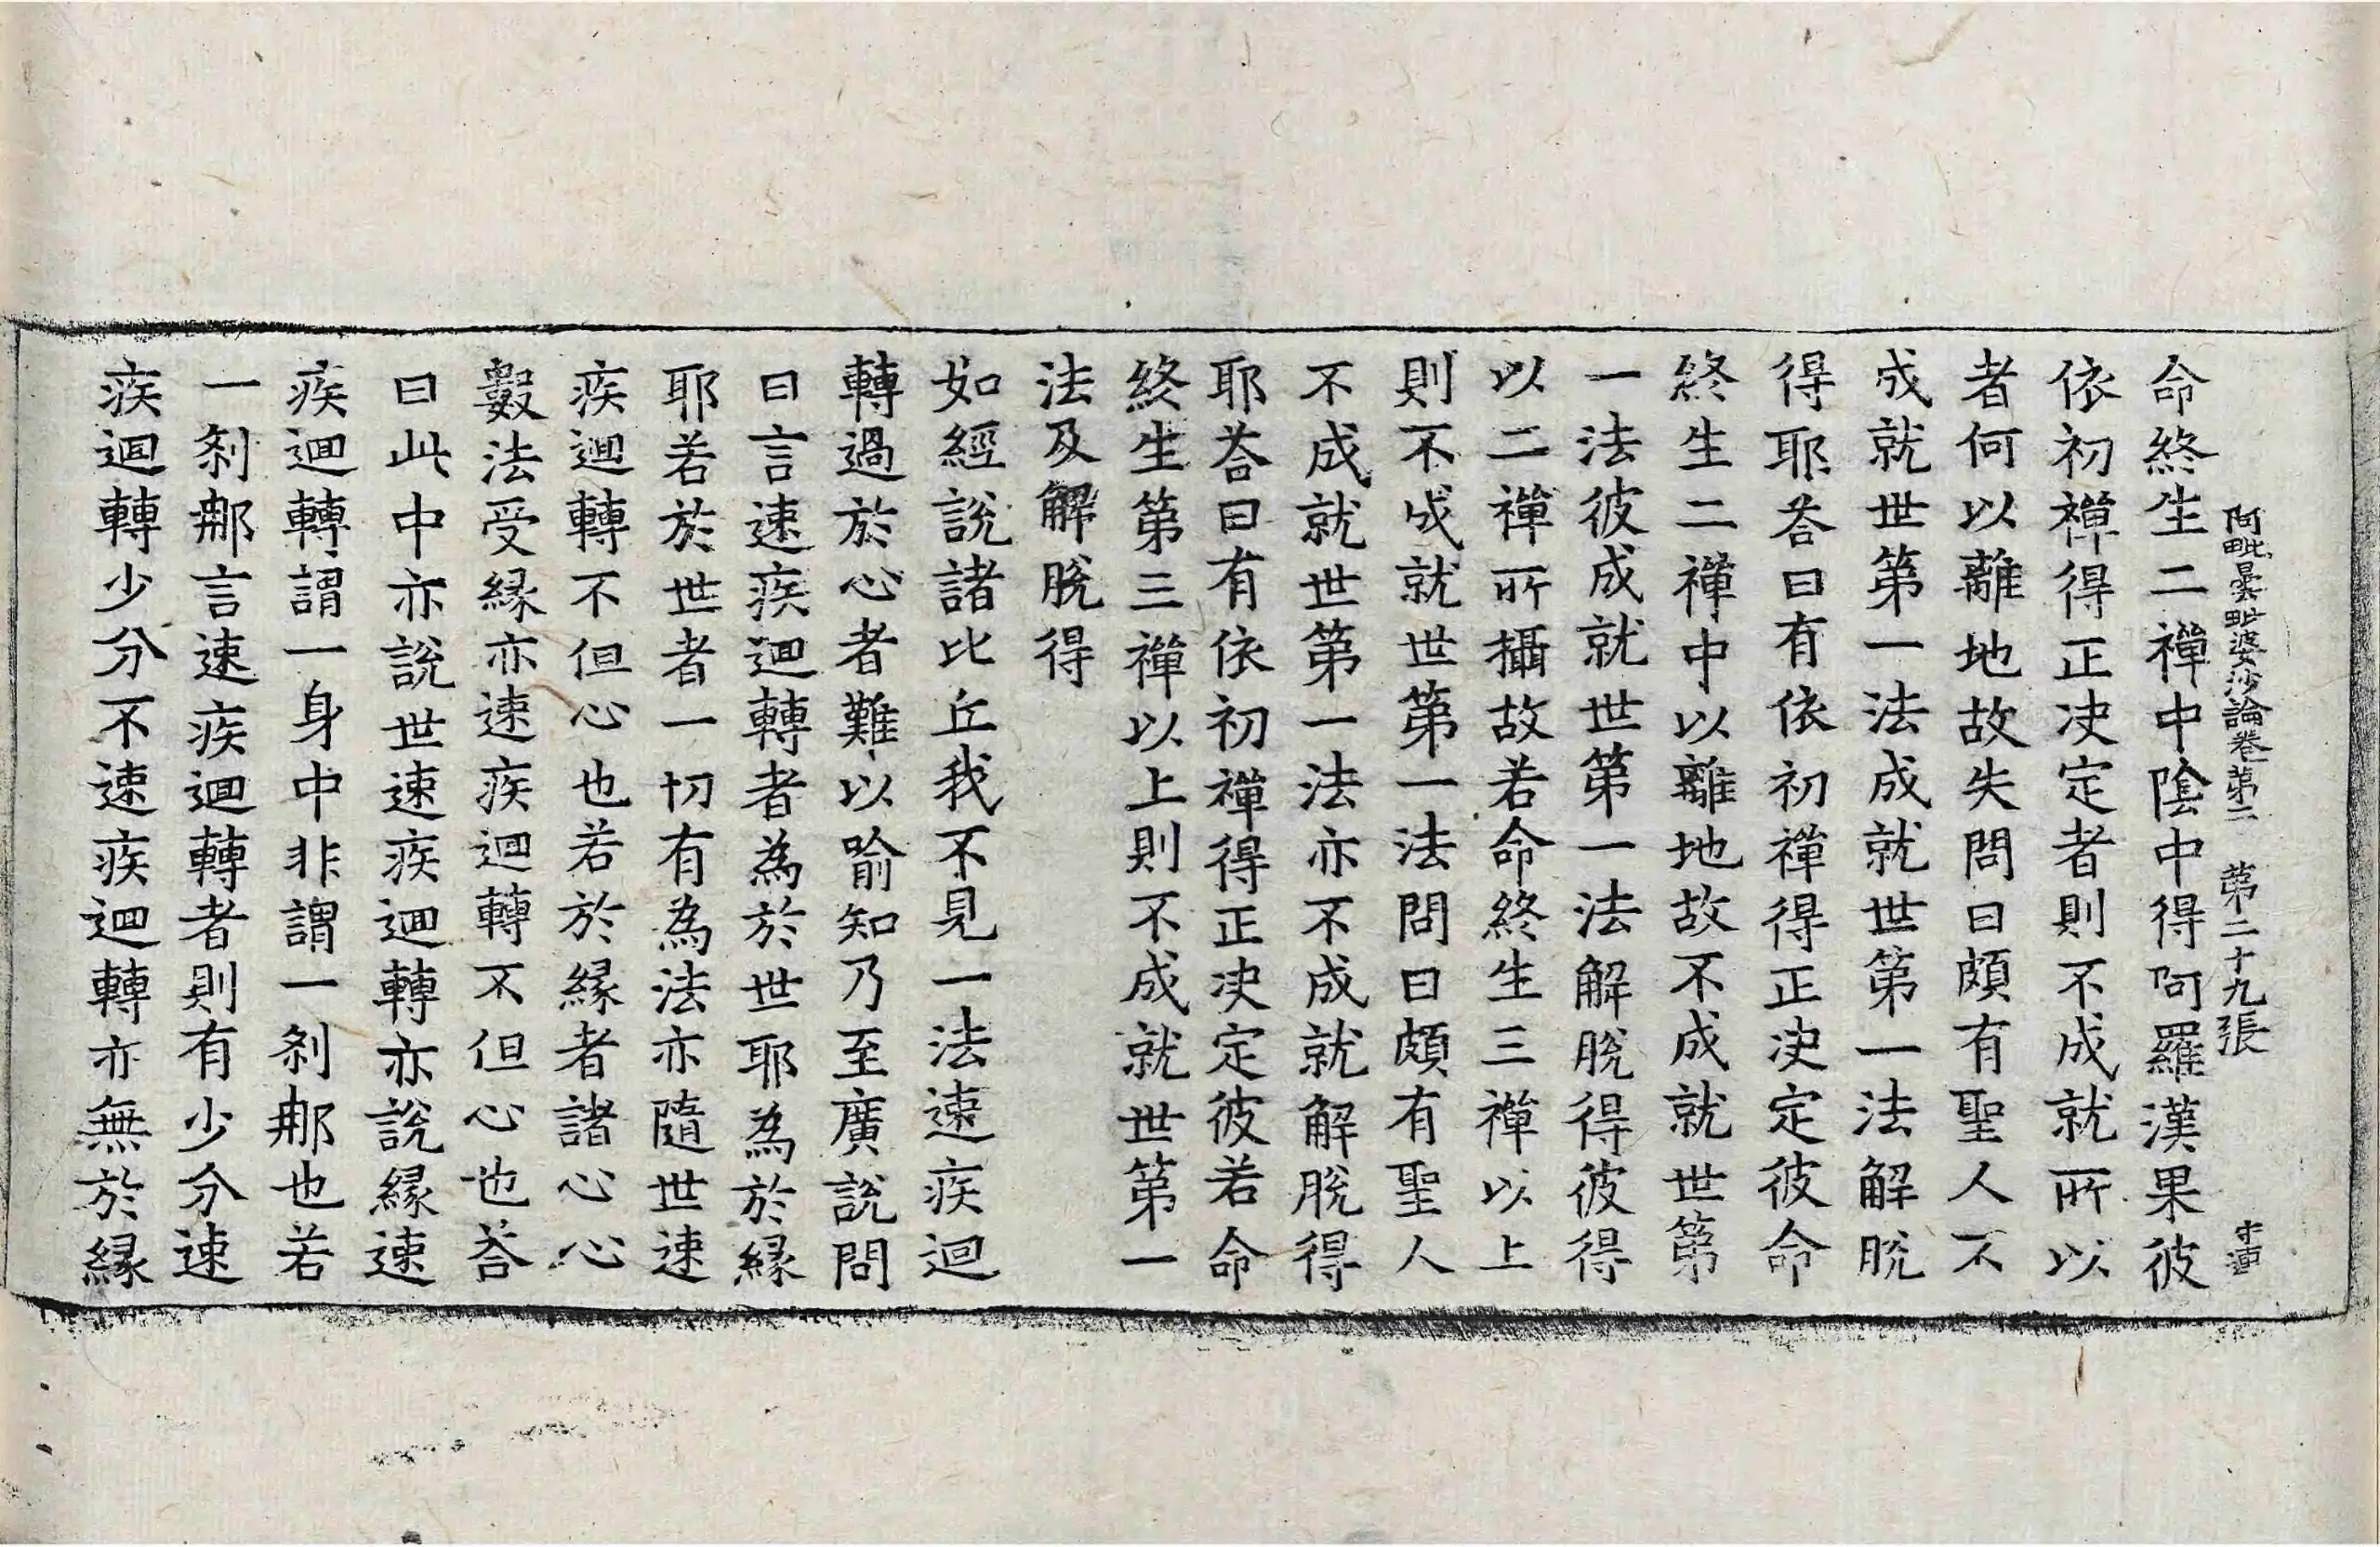 阿毗曇毗婆沙論卷第二　第二十九張
命終生二禪中陰中得阿羅漢果彼
依初禪得正决定者則不成就所以
者何以離地故失問曰頗有聖人不
成就世第一法成就世第一法解脫
得耶荅曰有依初禪得正决定彼命
終生二禪中以離地故不成就世第
一法彼成就世第一法解脫得彼得
以二禪所攝故若命終生三禪以上
則不成就世第一法問曰頗有聖人
不成就世第一法亦不成就解脫得
耶荅曰有依初禪得正决定彼若命
終生第三禪以上則不成就世第一
法及解脫得
如經說諸比丘我不見一法速疾迴
轉過於心者難以喻知乃至廣說問
曰言速疾迴轉者為於世耶為於緣
耶若於世者一切有為法亦隨世速
疾迴轉不但心也若於緣者諸心心
數法受緣亦速疾迴轉不但心也荅
曰此中亦說世速疾迴轉亦說緣速
疾迴轉謂一身中非謂一剎那也若
一剎那言速疾迴轉者則有少分速
疾迴轉少分不速疾迴轉亦無於緣